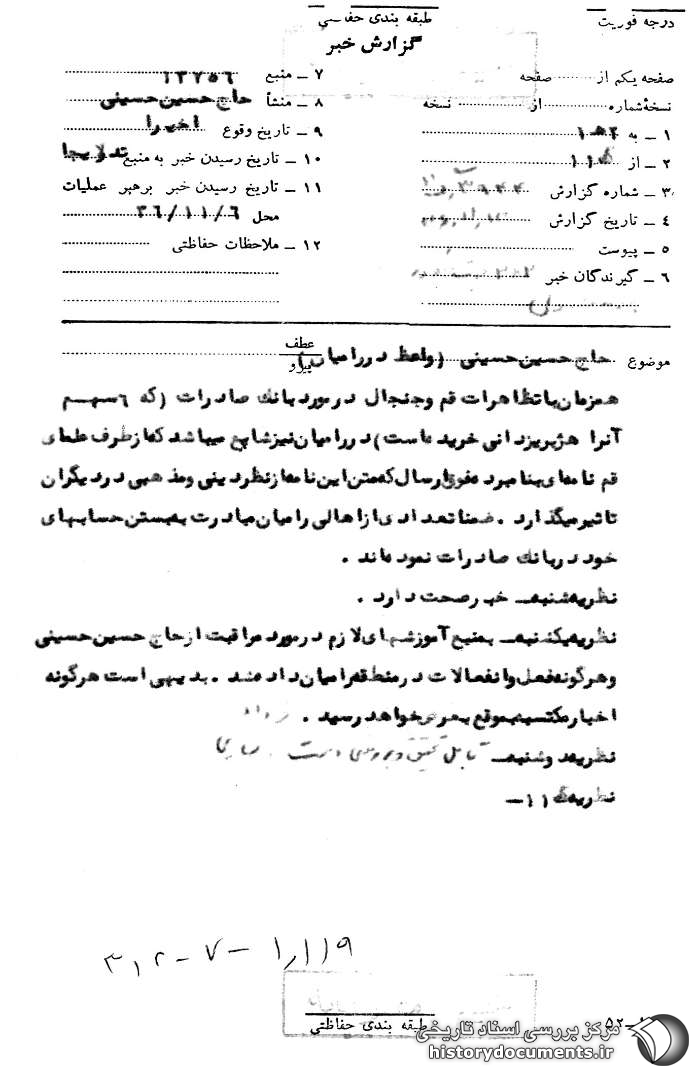 درجه فوریت
طبقه بندی حفاظتی
گزارش خبر
صفحه یکم از صفحه
نسخهٔ شماره از نسخه
۱ ــ به ۳۱۲
۲ ــ از ۱۱
۳ ــ شماره گزارش
۴ ــ تاریخ گزارش
۵ ــ پیوست
۶ ــ گیرندگان خبر
۷ ــ منبع ۱۳۷۵۶
۸ ــ منشأ حاج حسین حسینی
۹ ــ تاریخ وقوع اخیرا
۱۰ ــ تاریخ رسیدن خبر به منبع
۱۱ ــ تاریخ رسیدن خبر برهبر عملیات
محل ۳۶/۱۱/۶
۱۲ ــ ملاحظات حفاظتی
موضوع حاج حسین حسینی (واعظ در رامیان)
عطف
پیرو
همزمان با تظاهرات قم و جنجال در مورد بانک صادرات (که ۶ سهم
آنرا هژبر یزدانی خریده است) در رامیان نیز شایع میباشد که از طرف علمای
قم نامه‌ای بنامبرده فوق ارسال که متن این نامه از نظر دینی و مذهبی در دیگران
تاثیر میگذارد . ضمنا تعدادی از اهالی رامیان مبادرت به بستن حسابهای
خود در بانک صادرات نموده‌اند .
نظریه شنبه ــ خبر صحت دارد .
نظریه یکشنبه ــ به منبع آموزشهای لازم در مورد مراقبت از حاج حسین حسینی
و هر گونه فعل و انفعالات در منطقه رامیان داده شد . بدیهی است هر گونه
اخبار مکتسبه بموقع بعرض خواهد رسید .
نظریه دوشنبه ــ قابل تحقیق و بررسی است .
نظریه ۱۱ ــ
۳۱۲ - ۷ - ۱٫۱۱۹
طبقه بندی حفاظتی
مرکز بررسی اسناد تاریخی
historydocuments.ir